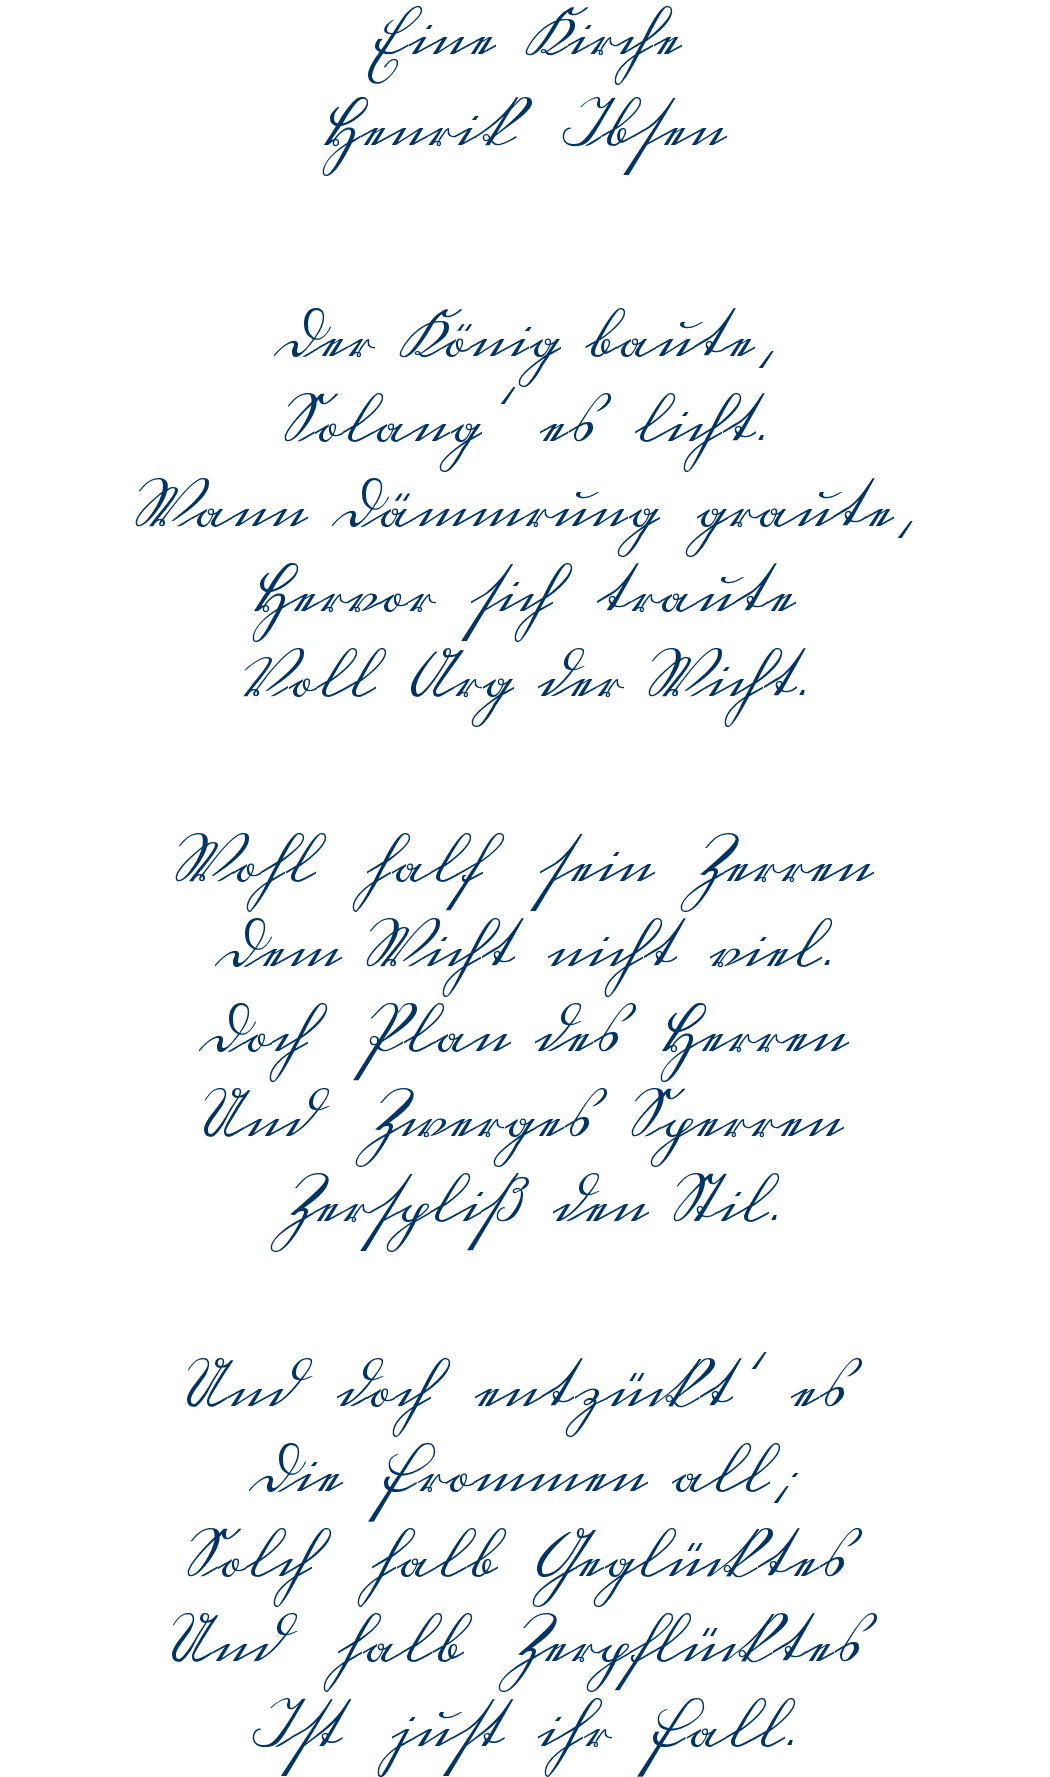 Eine Kirche
Henrik Ibsen
Der König baute,
Solang' es licht.
Wann Dämmrung graute,
Hervor sich traute
Voll Arg der Wicht.
Wohl half sein Zerren
Dem Wicht nicht viel.
Doch Plan des Herren
Und Zwerges Sperren
Zerspliß den Stil.
Und doch entzückt' es
Die Frommen all;
Solch halb Geglücktes
Und halb Zerpflücktes
Ist just ihr Fall.